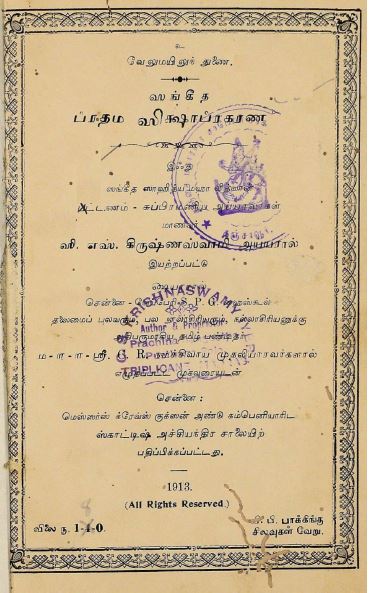 உ
வேலுமயிலுந் துணை.
ஸங்கீத
ப்ரதம ஸிக்ஷாப்ரகரண
இது
ஸங்கீத
பட்டணம் - சுப்பிரமணிய அய்யரவர்கள்
மாணவர்
ஸி. எஸ். கிருஷ்ணஸ்வாமி அய்யரால்
இயற்றப்பட்டு
சென்னை - S. P. G. ஹைஸ்கூல்
தலைமைப் புலவரும், பல
தமிழ் பண்டிதர்
ம-ா-ா-ஸ்ரீ, C. R. நமசிவாய முதலியாரவர்களால்
எழுதப்பட்ட முகவுரையுடன்
சென்னை :
மெஸ்ஸர்ஸ் க்ரேவ்ஸ் குக்ஸன் அண்டு கம்பெனியாரிட
ஸ்காட்டிஷ் அச்சியந்திர சாலையிற்
பதிப்பிக்கப்பட்டது.
1913.
(All Rights Reserved.)
விலை ரூ. 1-4-0.
8
வி. பி. பாக்கிங்கு
சிலவுகள் வேறு.
KRISHNASWAMY
Author & Proprietor
TRIPLICANE